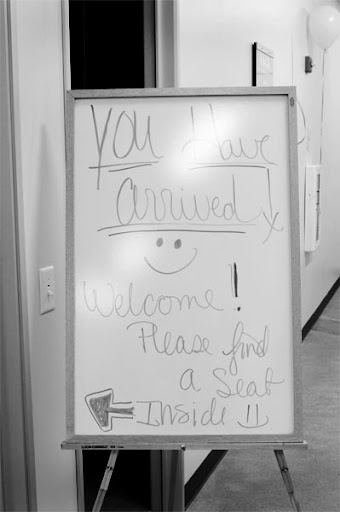 You Have
Arrived!
Welcome!
Please find
a Seat
Inside